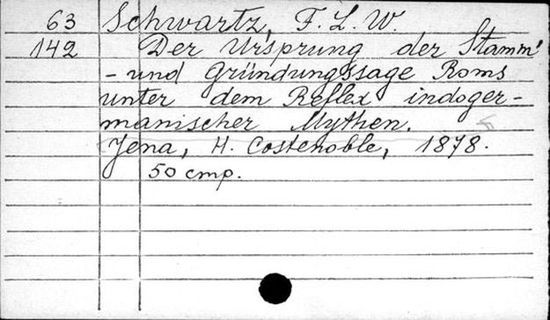 63 Schwartz, F. L. W.
142 Der Ursprung der Stamm-
- und Gründungssage Roms
unter dem Reflex indoger-
manischer Mythen.
Jena, H. Costenoble, 1878.
50 cmp.